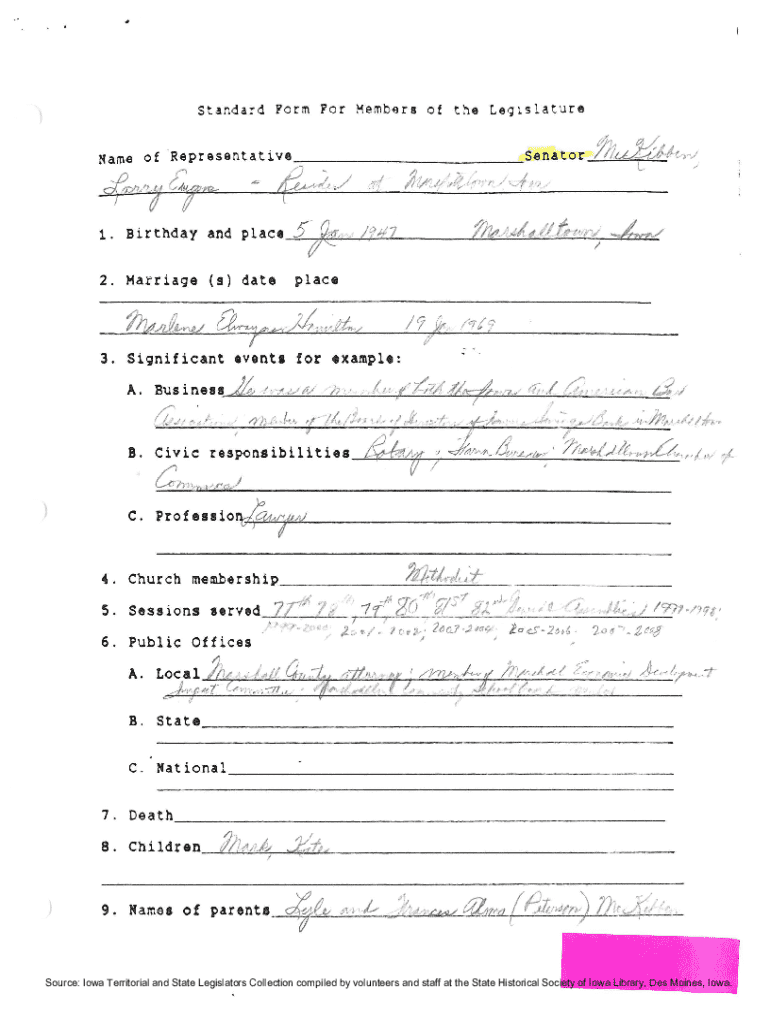 Standard Form For Members of the Legislature
Name of Representative Senator McKibben,
Larry Eugene - Resides at Marshalltown
1. Birthday and place 5 Jan 1947 Marshalltown, Iowa
2. Marriage (s) date place
Marlene Hamilton 19 Jan 1969
3. Significant events for example:
A. Business He was a member of both the Iowa and American Bar
Associations; member of the Board of Directors of Savings Bank in
B. Civic responsibilities Rotary; Farm Bureau; Marshalltown Chamber of
Commerce
C. Profession Lawyer
4. Church membership Methodist
5. Sessions served 77th 78th, 79th 80th 81st 82nd General Assemblies 1997-1998;
1999-2000; 2001-2002; 2003-2004; 2005-2006; 2007-2008
6. Public Offices
A. Local Marshall County attorney; member of Marshall Economic Development
Impact Committee; Community School
B. State
C. National
7. Death
8. Children Mark, Kate
9. Names of parents Lyle and Frances Alma (Peterson) McKibben
Source: Iowa Territorial and State Legislators Collection compiled by volunteers and staff at the State Historical Society of Iowa Library, Des Moines, Iowa.